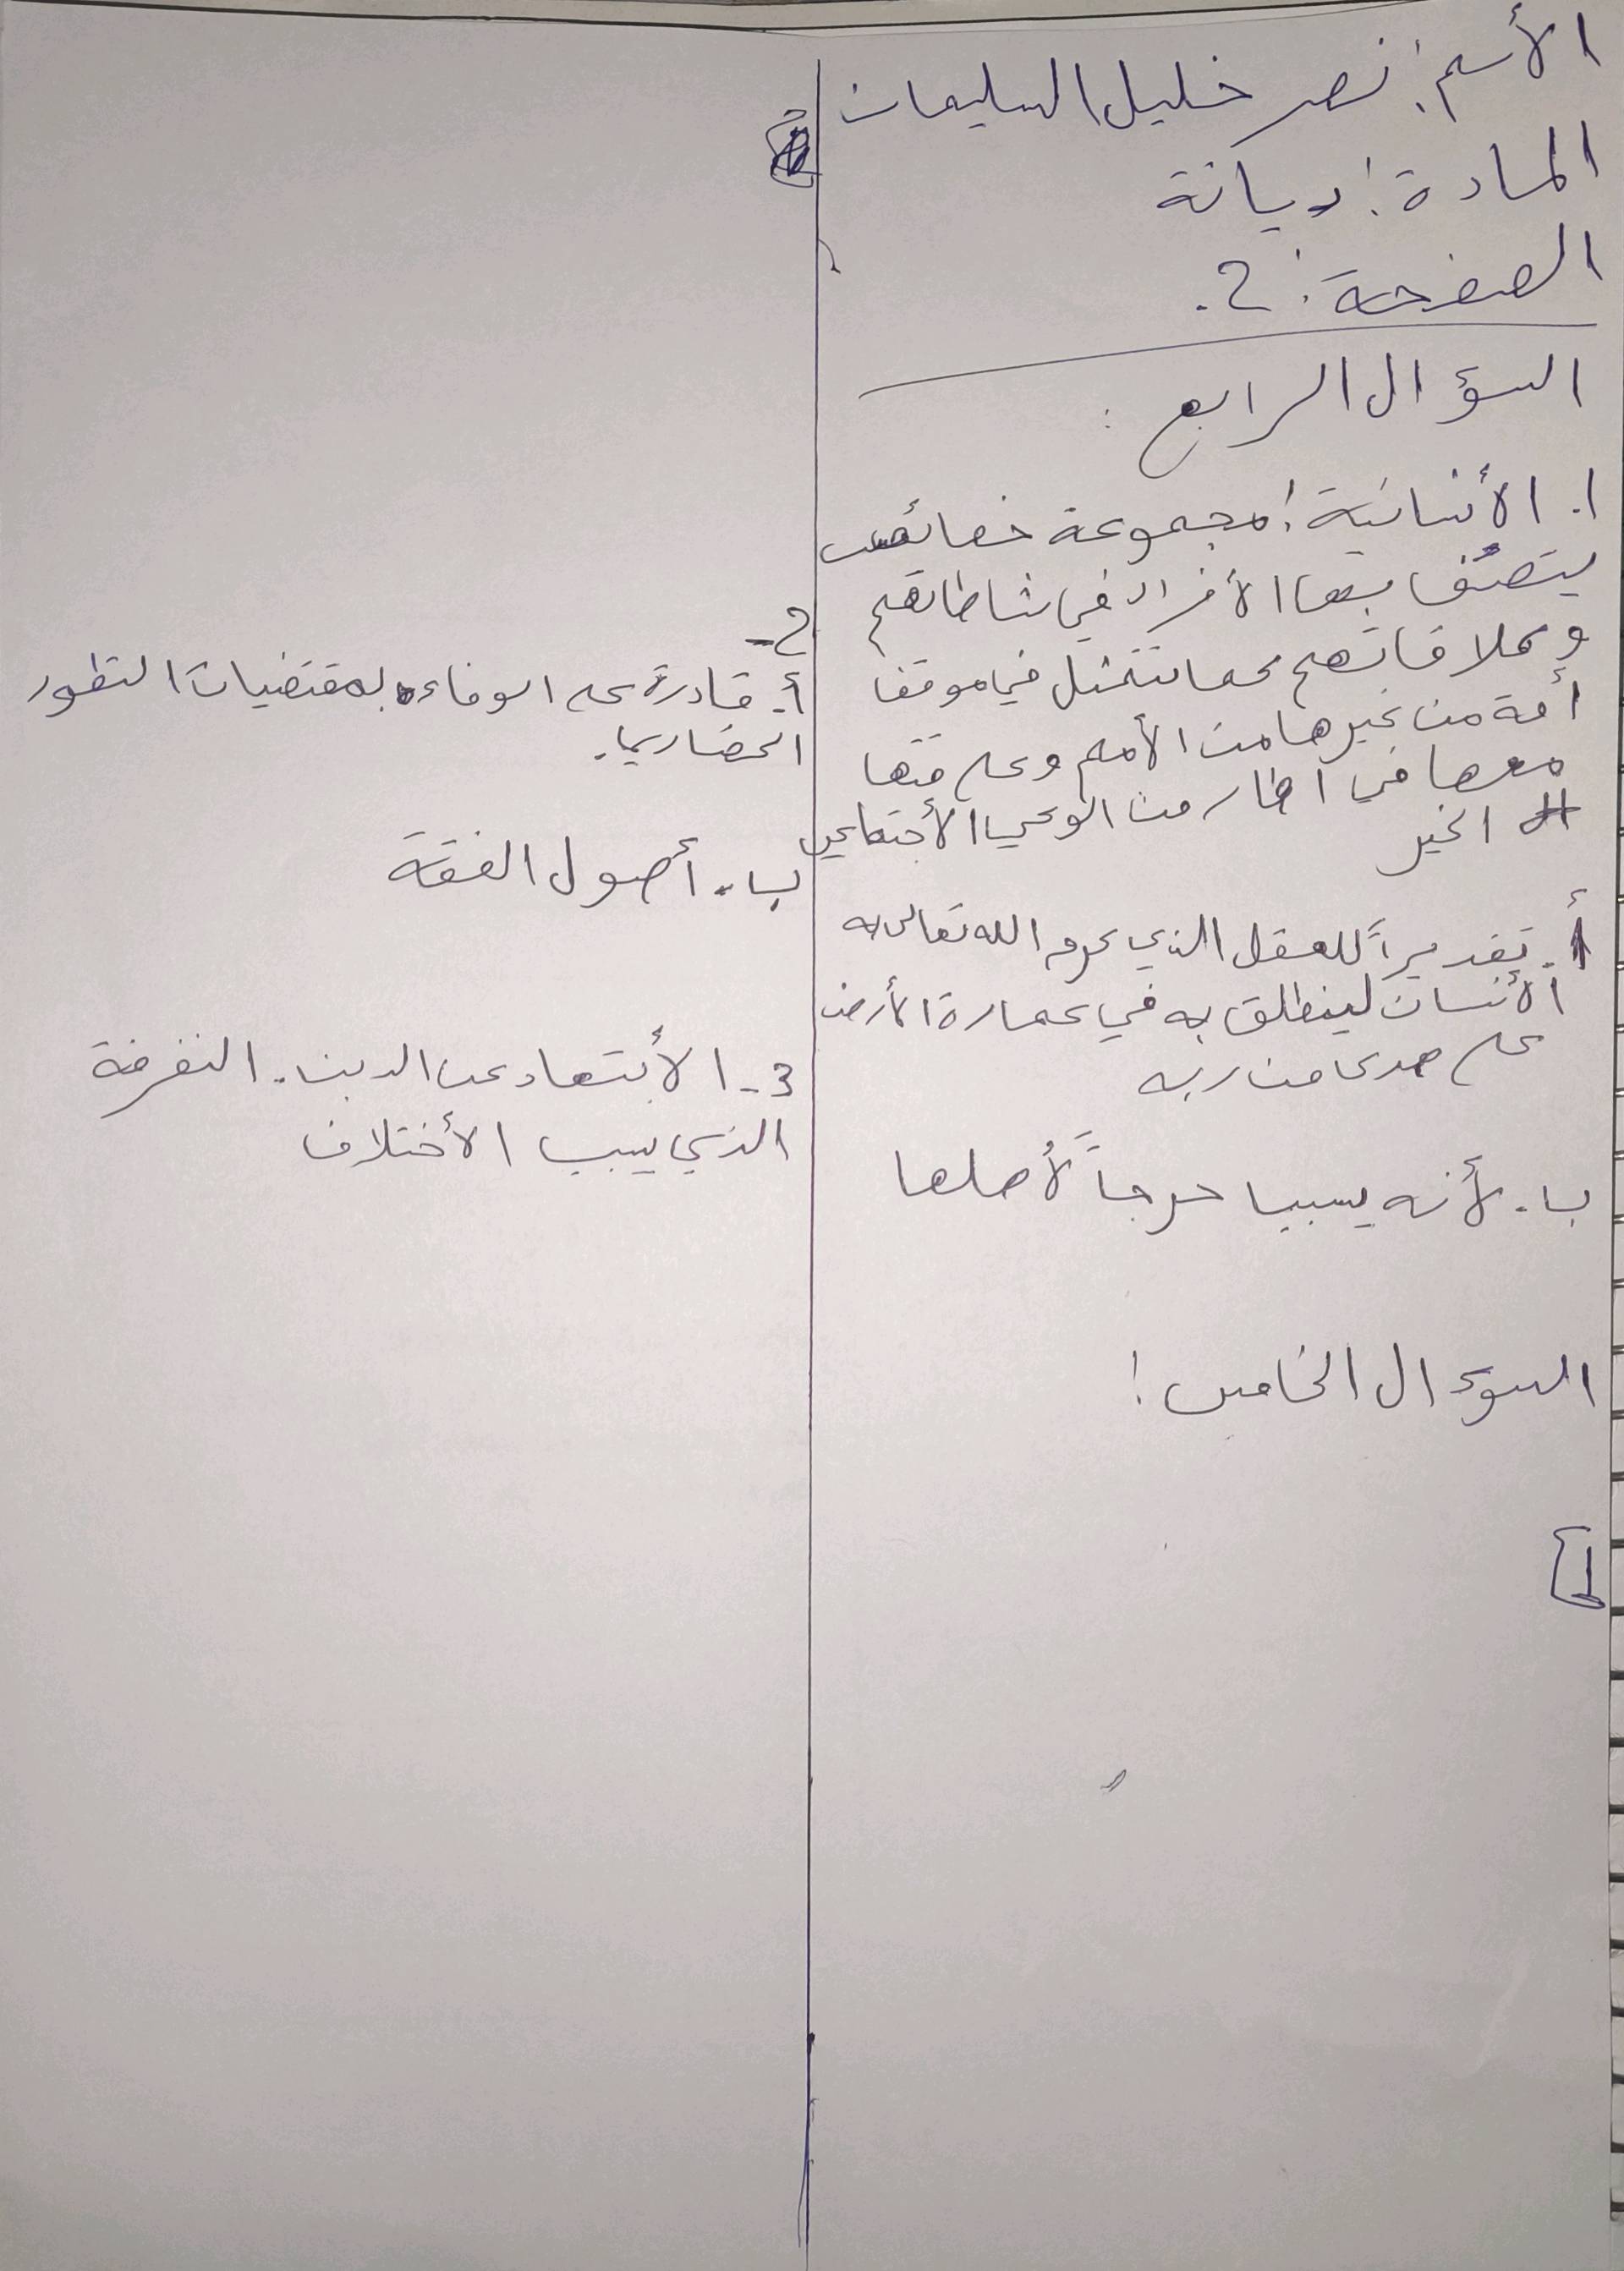 الأسم: نصر خليل السليمان
المادة: ديانة
الصفحة: 2.
السؤال الرابع:
1. الأنسانية: مجموعة خصائص
يتصف بها الأفراد في نشاطاتهم
وعلاقاتهم كما تتمثل في موقف
أمة من غيرها من الأمم وعلاقتها
معها في اطار من الوعي الأجتماعي
الخير
أ. تقديراً للعقل الذي كرم الله تعالى به
الأنسان لينطلق به في عمارة الأرض
على هدى من ربه
ب. لأنه يسبب حرجاً لأهلها
السوءال الخامس:
1
2-
أ. قادرة على الوفاء بمقتضيات التطور
الحضاري.
ب. أصول الفقة
3- الأبتعاد عن الدين. التفرقة
الذي يسبب الأختلاف